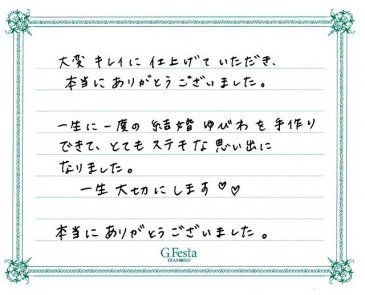 大変 キレイに 仕上げて いただき、
本当に ありがとう ございました。
一生に 一度の 結婚 ゆびわ を 手作り
できて、とても ステキな 思い出に
なりました。
一生 大切に します♡♡
本当に ありがとう ございました。
G.Festa
DIAMOND